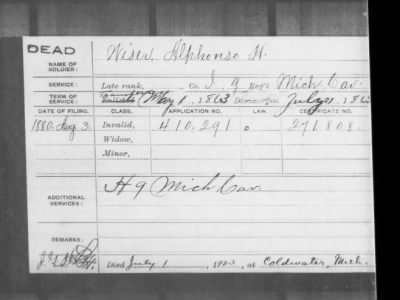 DEAD
NAME OF SOLDIER: Wiser, Alphonso H.
SERVICE: Late rank, Co. I, 9 Reg't Mich. Cav.
TERM OF SERVICE: Enlisted May 1, 1863 Discharged July 21, 186
DATE OF FILING. CLASS. APPLICATION NO. LAW. CERTIFICATE NO.
1880. Aug 3. Invalid, 410.291 271808.
Widow,
Minor,
ADDITIONAL SERVICES: H 9 Mich Cav
REMARKS:
Died July 1, 192, at Coldwater, Mich.